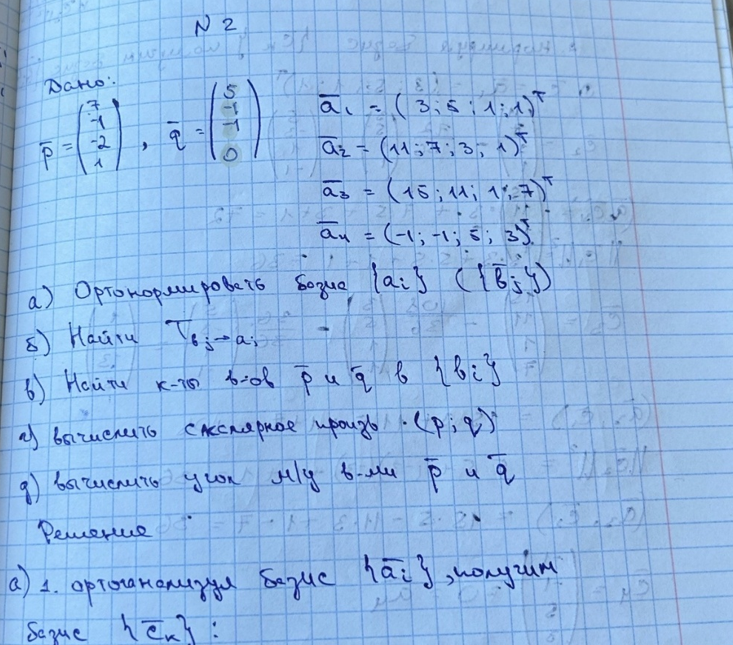 N 2
Дано:
p̄ = (7 -1 -2 1), q̄ = (5 -1 -1 0)
ā₁ = (3; 5; 1; 1)ᵀ
ā₂ = (11; 7; 3; 1)ᵀ
ā₃ = (15; 11; 1; 7)ᵀ
ā₄ = (-1; -1; 5; 3)ᵀ
а) Ортонормировать базис {aᵢ} ({b̄ⱼ})
б) Найти T bⱼ→aᵢ
в) Найти к-ты в-ов p̄ и q̄ в {bᵢ}
г) вычислить скалярное произв. (p; q)
д) вычислить угол м/у в-ми p̄ и q̄
Решение
а) 1. ортоганализуя базис {āᵢ}, получим
базис {c̄ₖ}: